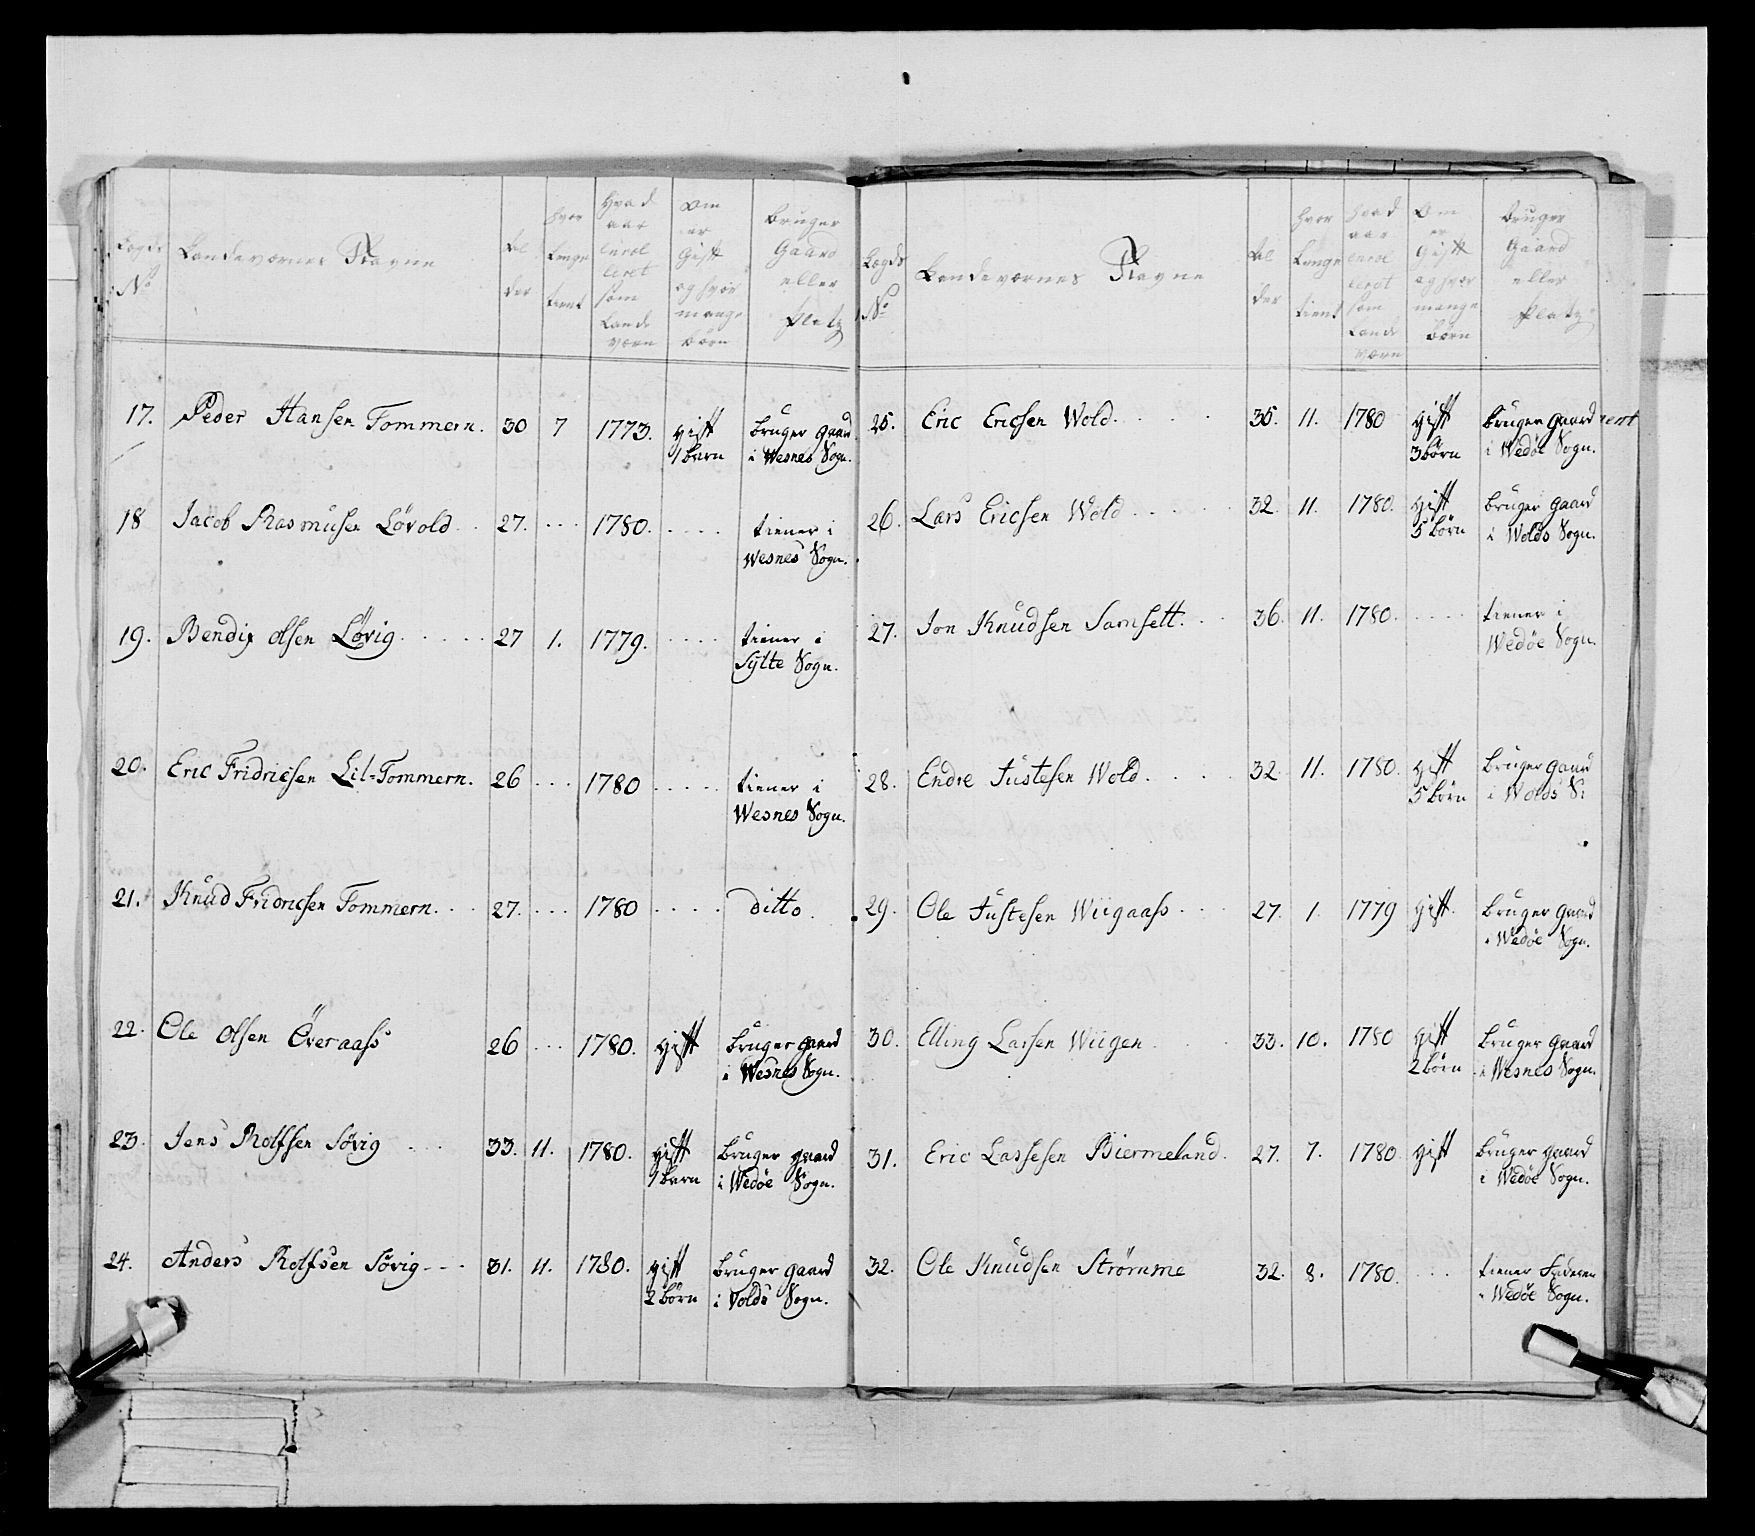 Lægds No
Landeværnes Navne
Al der
hvor Længe tient
Hvad aar enrol leret som Lande værn
Om er Gift og hvor mange børn
Bruger Gaard eller Platz
17. Peder Hansen Tommern. 30 7 1773. gift bruger gaard
1 barn i Wesnes Sogn.
18 Jacob Rasmusen Løvold 27. 1780. tiener i
Wesnes Sogn.
19. Bendix Olsen Løvig 27 1. 1779. tiener i
Sylte Sogn.
20. Eric Fridricsen Lil-Tommern. 26 1780 tiener i
Wesnes Sogn.
21. Knud Fridricsen Tommern 27. 1780 ditto.
22. Ole Olsen Överaass 26 1780. gift bruger gaard
i Wesnes Sogn.
23. Jens Rolfsen Søvig 33. 11. 1780. gift bruger gaard
1 barn i Wedöe Sogn.
24. Anders Rolfsen Søvig 31. 11. 1780. gift bruger gaard
2 börn i Volds Sogn.
Lægds No
Landeværnes Navne
Al der
hvor Længe tient
hvad aar enrol leret som Lande værn
Om er Gift og hvor mange börn
Bruger Gaard eller Platz
25. Eric Ericsen Wold 35. 11. 1780 gift bruger gaard
3 börn i Wedöe Sogn.
26. Lars Ericsen Wold 32. 11. 1780. gift bruger gaard
5 börn i Wolds Sogn.
27. Jon Knudsen Samsett. 36. 11. 1780. tiener i
Wedöe Sogn.
28. Endre Justesen Wold 32. 11. 1780. gift bruger gaard
5 börn i Wolds S:
29. Ole Justesen Wiigaass 27. 1. 1779 gift bruger gaard
i Wedöe Sogn.
30. Elling Larsen Wiigen 33. 10. 1780 gift bruger gaard
2 börn i Wesnes Sogn.
31. Eric Lassesen Biermeland. 27. 7. 1780 gift bruger gaard
i Wedöe Sogn.
32. Ole Knudsen Strømme 32. 8. 1780. tiener Faderen
i Wedöe Sogn.